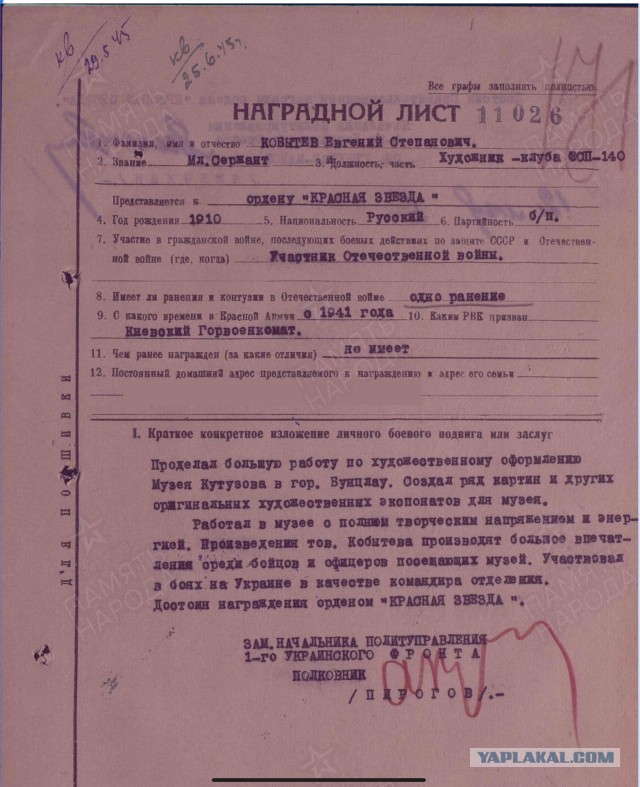 кв
29.5.45
кв
25.6.45г.
Все графы заполнять полностью.
НАГРАДНОЙ ЛИСТ 11026
1. Фамилия, имя и отчество КОБЫТЕВ Евгений Степанович.
2. Звание Мл.Сержант 3. Должность, часть Художник -клуба ФСП-140
Представляется к ордену "КРАСНАЯ ЗВЕЗДА"
4. Год рождения 1910 5. Национальность Русский 6. Партийность б/п.
7. Участие в гражданской войне, последующих боевых действиях по защите СССР и Отечествен-
ной войне (где, когда) Участник Отечественной войны.
8. Имеет ли ранения и контузии в Отечественной войне одно ранение
9. С какого времени в Красной Армии с 1941 года 10. Каким РВК призван
Киевский Горвоенкомат.
11. Чем ранее награжден (за какие отличия) не имеет
12. Постоянный домашний адрес представляемого к награждению и адрес его семьи
I. Краткое конкретное изложение личного боевого подвига или заслуг
Проделал большую работу по художественному оформлению
Музея Кутузова в гор. Бунцлау. Создал ряд картин и других
оригинальных художественных экспонатов для музея.
Работал в музее с полным творческим напряжением и энер-
гией. Произведения тов. Кобытева производят большое впечат-
ления среди бойцов и офицеров посещающих музей. Участвовал
в боях на Украине в качестве командира отделения.
Достоин награждения орденом "КРАСНАЯ ЗВЕЗДА".
ЗАМ.НАЧАЛЬНИКА ПОЛИТУПРАВЛЕНИЯ
1-го УКРАИНСКОГО ФРОНТА
ПОЛКОВНИК
/ПИРОГОВ/.-
ДЛЯ ПОДШИВКИ
ПАМЯТЬ НАРОДА
YAPLAKAL.COM